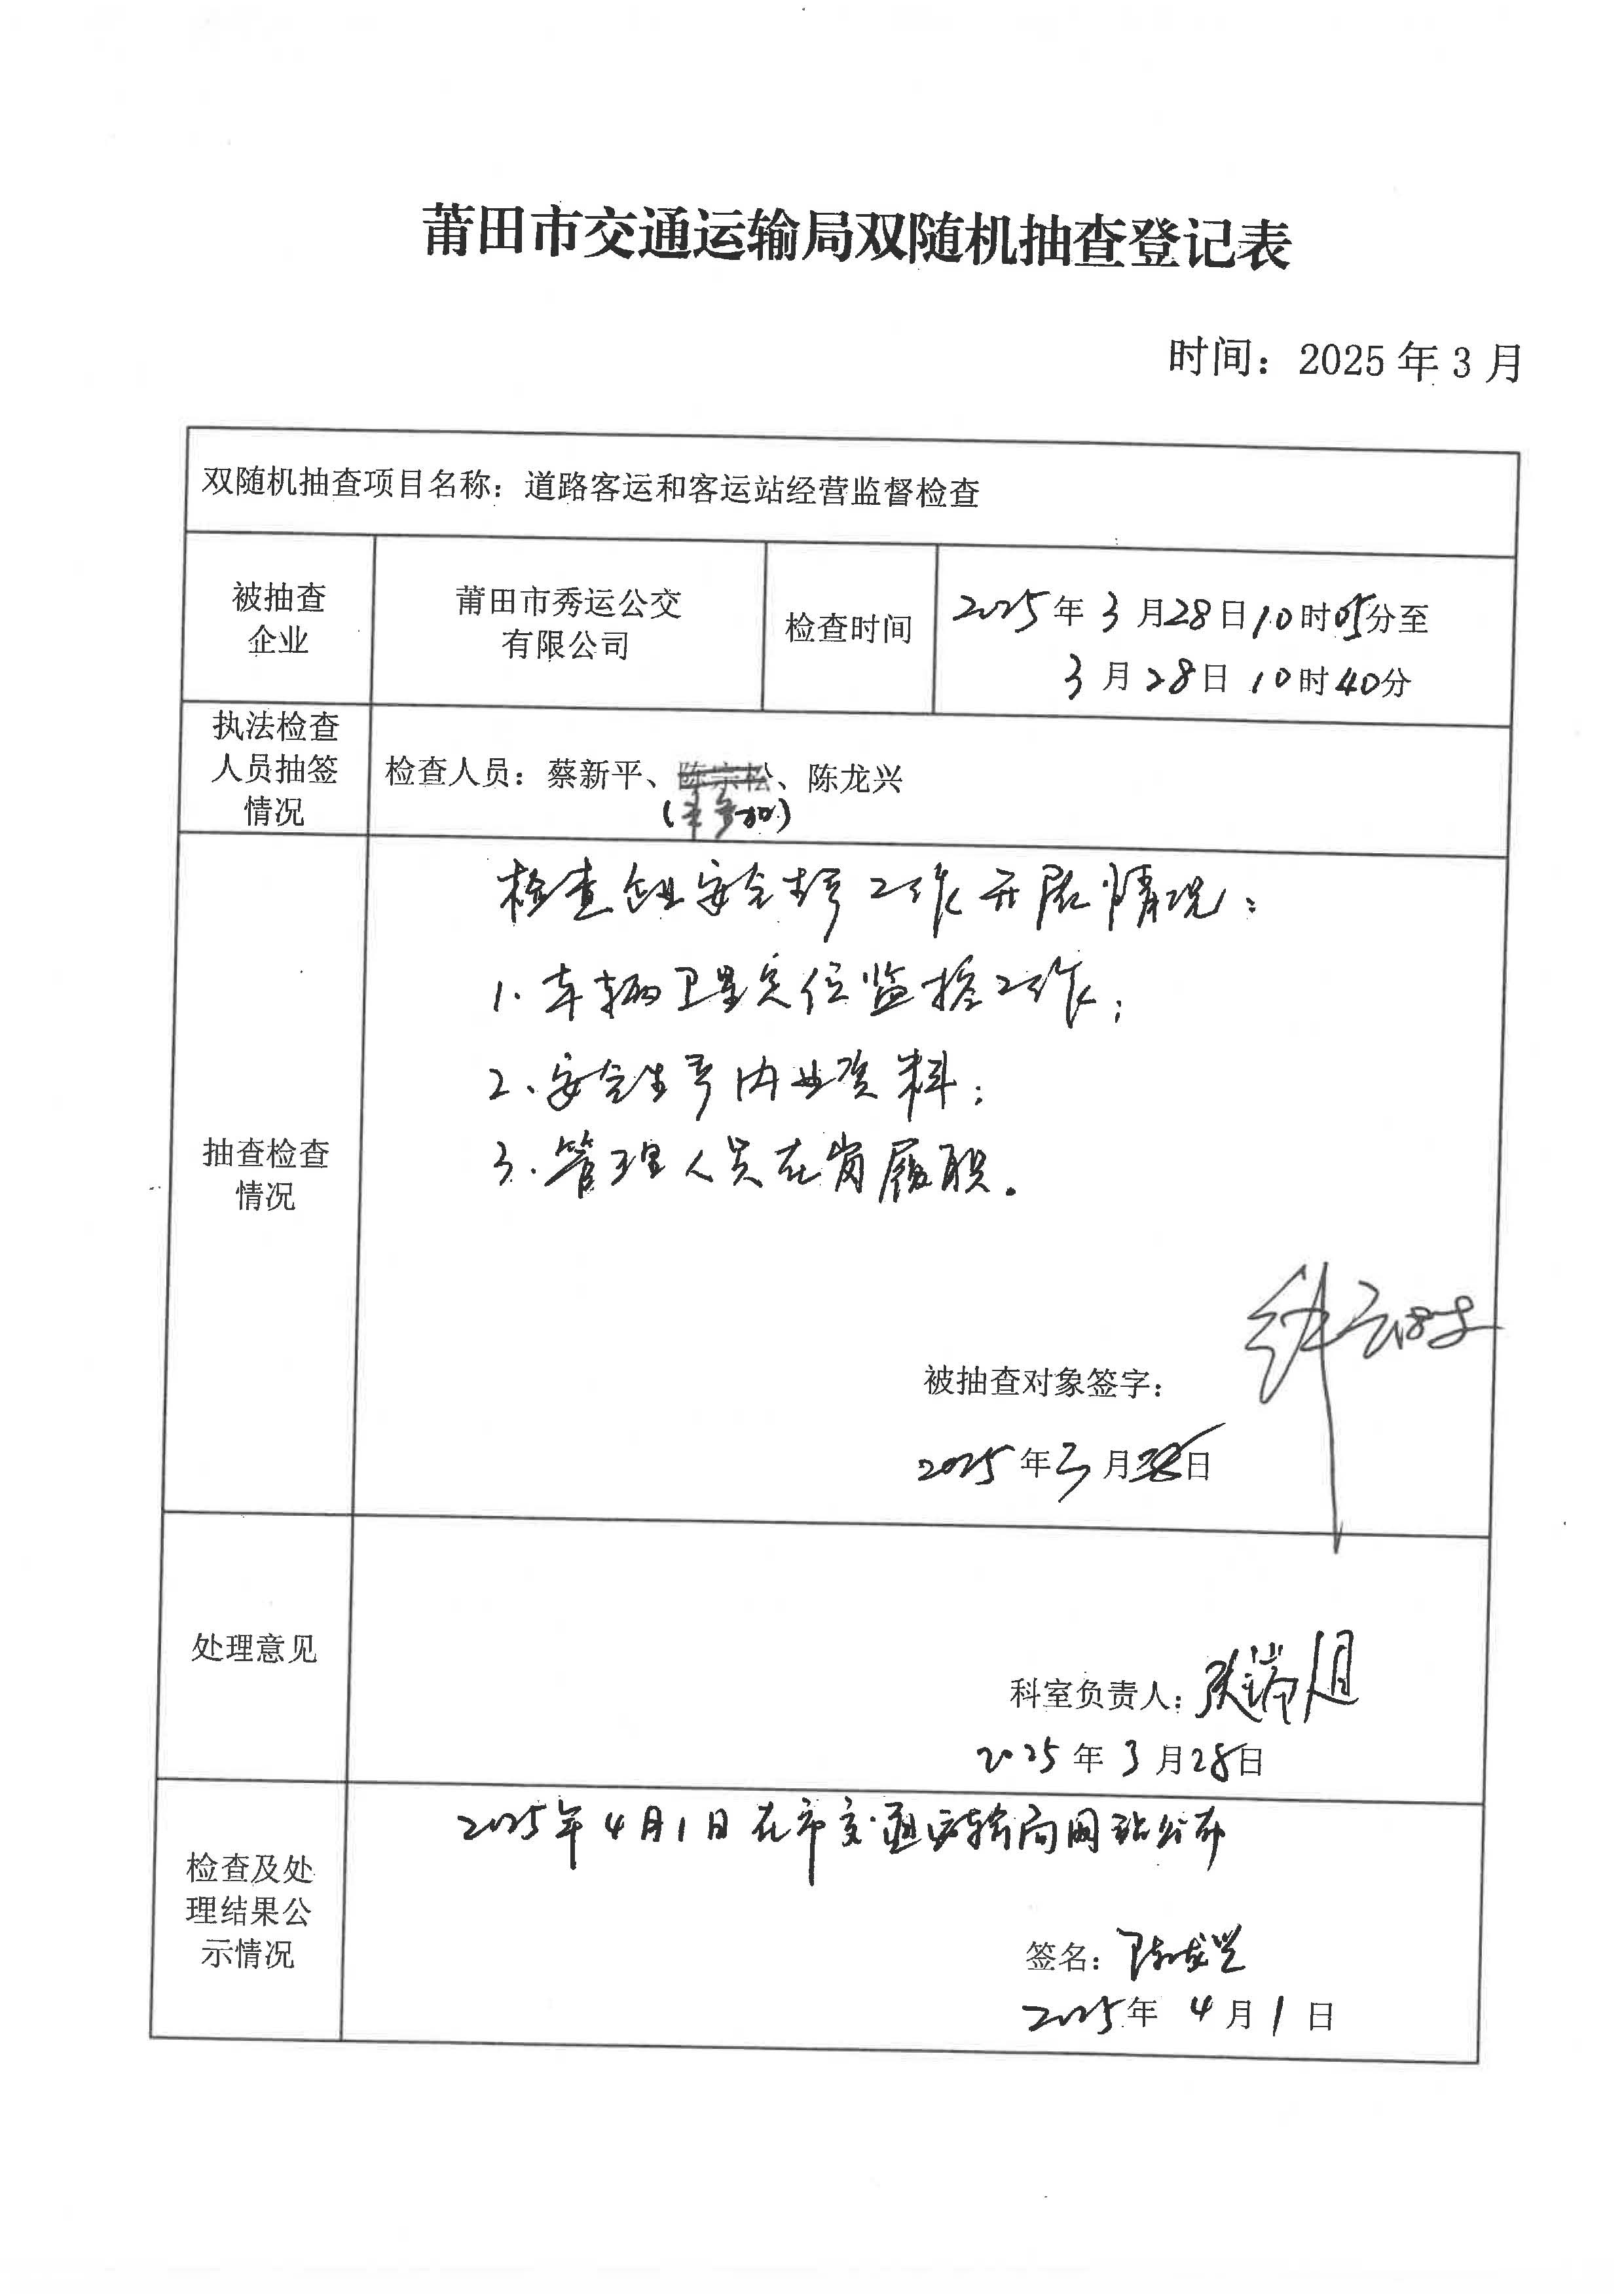 莆田市交通运输局双随机抽查登记表
时间：2025年3月
双随机抽查项目名称：道路客运和客运站经营监督检查
被抽查
企业
莆田市秀运公交
有限公司
检查时间
2025年3月28日10时05分至
3月28日10时40分
执法检查
人员抽签
情况
检查人员：蔡新平、陈宗松、陈龙兴
(未参加)
抽查检查
情况
检查企业安全生产工作开展情况：
1.车辆卫星定位监控工作；
2、安全生产内业资料；
3.管理人员在岗履职。
被抽查对象签字：
2025年3月28日
处理意见
科室负责人：
2025年3月28日
检查及处
理结果公
示情况
2025年4月1日在市交通运输局网站公布
签名：陈龙兴
2025年4月1日